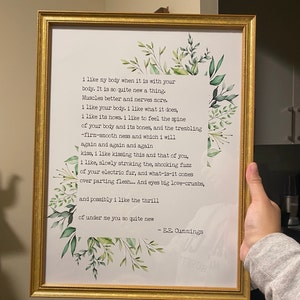 i like my body when it is with your
body. It is so quite new a thing.
Muscles better and nerves more.
i like your body. i like what it does,
i like its hows. i like to feel the spine
of your body and its bones, and the trembling
-firm-smooth ness and which i will
again and again and again
kiss, i like kissing this and that of you,
i like, slowly stroking the, shocking fuzz
of your electric fur, and what-is-it comes
over parting flesh... And eyes big love-crumbs,
and possibly i like the thrill
of under me you so quite new
- E.E. Cummings